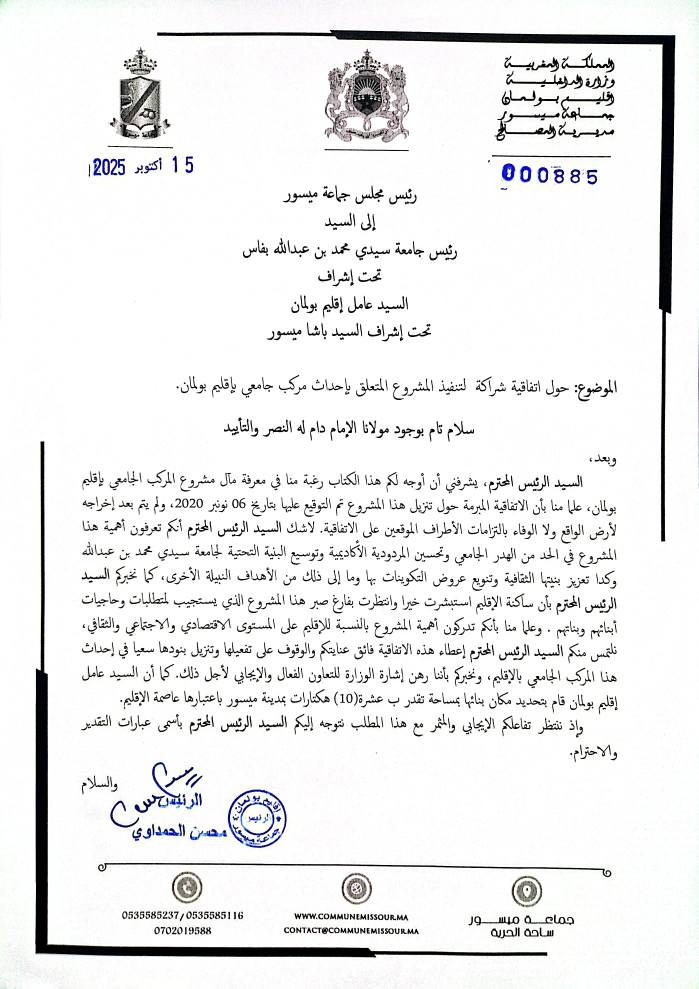 المملكة المغربية
وزارة الداخلية
إقليم بولمان
جماعة ميسور
مديرية المصالح
15 أكتوبر 2025
000885
رئيس مجلس جماعة ميسور
إلى السيد
رئيس جامعة سيدي محمد بن عبدالله بفاس
تحت إشراف
السيد عامل إقليم بولمان
تحت إشراف السيد باشا ميسور
الموضوع: حول اتفاقية شراكة لتنفيذ المشروع المتعلق بإحداث مركب جامعي بإقليم بولمان.
سلام تام بوجود مولانا الإمام دام له النصر والتأييد
وبعد،
السيد الرئيس المحترم، يشرفني أن أوجه لكم هذا الكتاب رغبة منا في معرفة مآل مشروع المركب الجامعي بإقليم
بولمان، علما منا بأن الاتفاقية المبرمة حول تنزيل هذا المشروع تم التوقيع عليها بتاريخ 06 نونبر 2020، ولم يتم بعد إخراجه
لأرض الواقع ولا الوفاء بالتزامات الأطراف الموقعين على الاتفاقية. لاشك السيد الرئيس المحترم أنكم تعرفون أهمية هذا
المشروع في الحد من الهدر الجامعي وتحسين المردودية الأكاديمية وتوسيع البنية التحتية لجامعة سيدي محمد بن عبدالله
وكدا تعزيز بنيتها الثقافية وتنويع عروض التكوينات بها وما إلى ذلك من الأهداف النبيلة الأخرى، كما نخبركم السيد
الرئيس المحترم بأن ساكنة الإقليم استبشرت خيرا وانتظرت بفارغ صبر هذا المشروع الذي يستجيب لمتطلبات وحاجيات
أبنائهم وبناتهم . وعلما منا بأنكم تدركون أهمية المشروع بالنسبة للإقليم على المستوى الاقتصادي والاجتماعي والثقافي،
نلتمس منكم السيد الرئيس المحترم إعطاء هذه الاتفاقية فائق عنايتكم والوقوف على تفعيلها وتنزيل بنودها سعيا في إحداث
هذا المركب الجامعي بالإقليم، ونخبركم بأننا رهن إشارة الوزارة للتعاون الفعال والإيجابي لأجل ذلك. كما أن السيد عامل
إقليم بولمان قام بتحديد مكان بنائها بمساحة تقدر ب عشرة(10) هكتارات بمدينة ميسور باعتبارها عاصمة الإقليم.
وإذ ننتظر تفاعلكم الإيجابي والمثمر مع هذا المطلب نتوجه إليكم السيد الرئيس المحترم بأسمى عبارات التقدير
والاحترام.
والسلام
الرئيس
محسن الحمداوي
إقليم بولمان
الرئيس
جماعة ميسور
0535585237/0535585116
0702019588
WWW.COMMUNEMISSOUR.MA
CONTACT@COMMUNEMISSOUR.MA
جماعة ميسور
ساحة الحرية